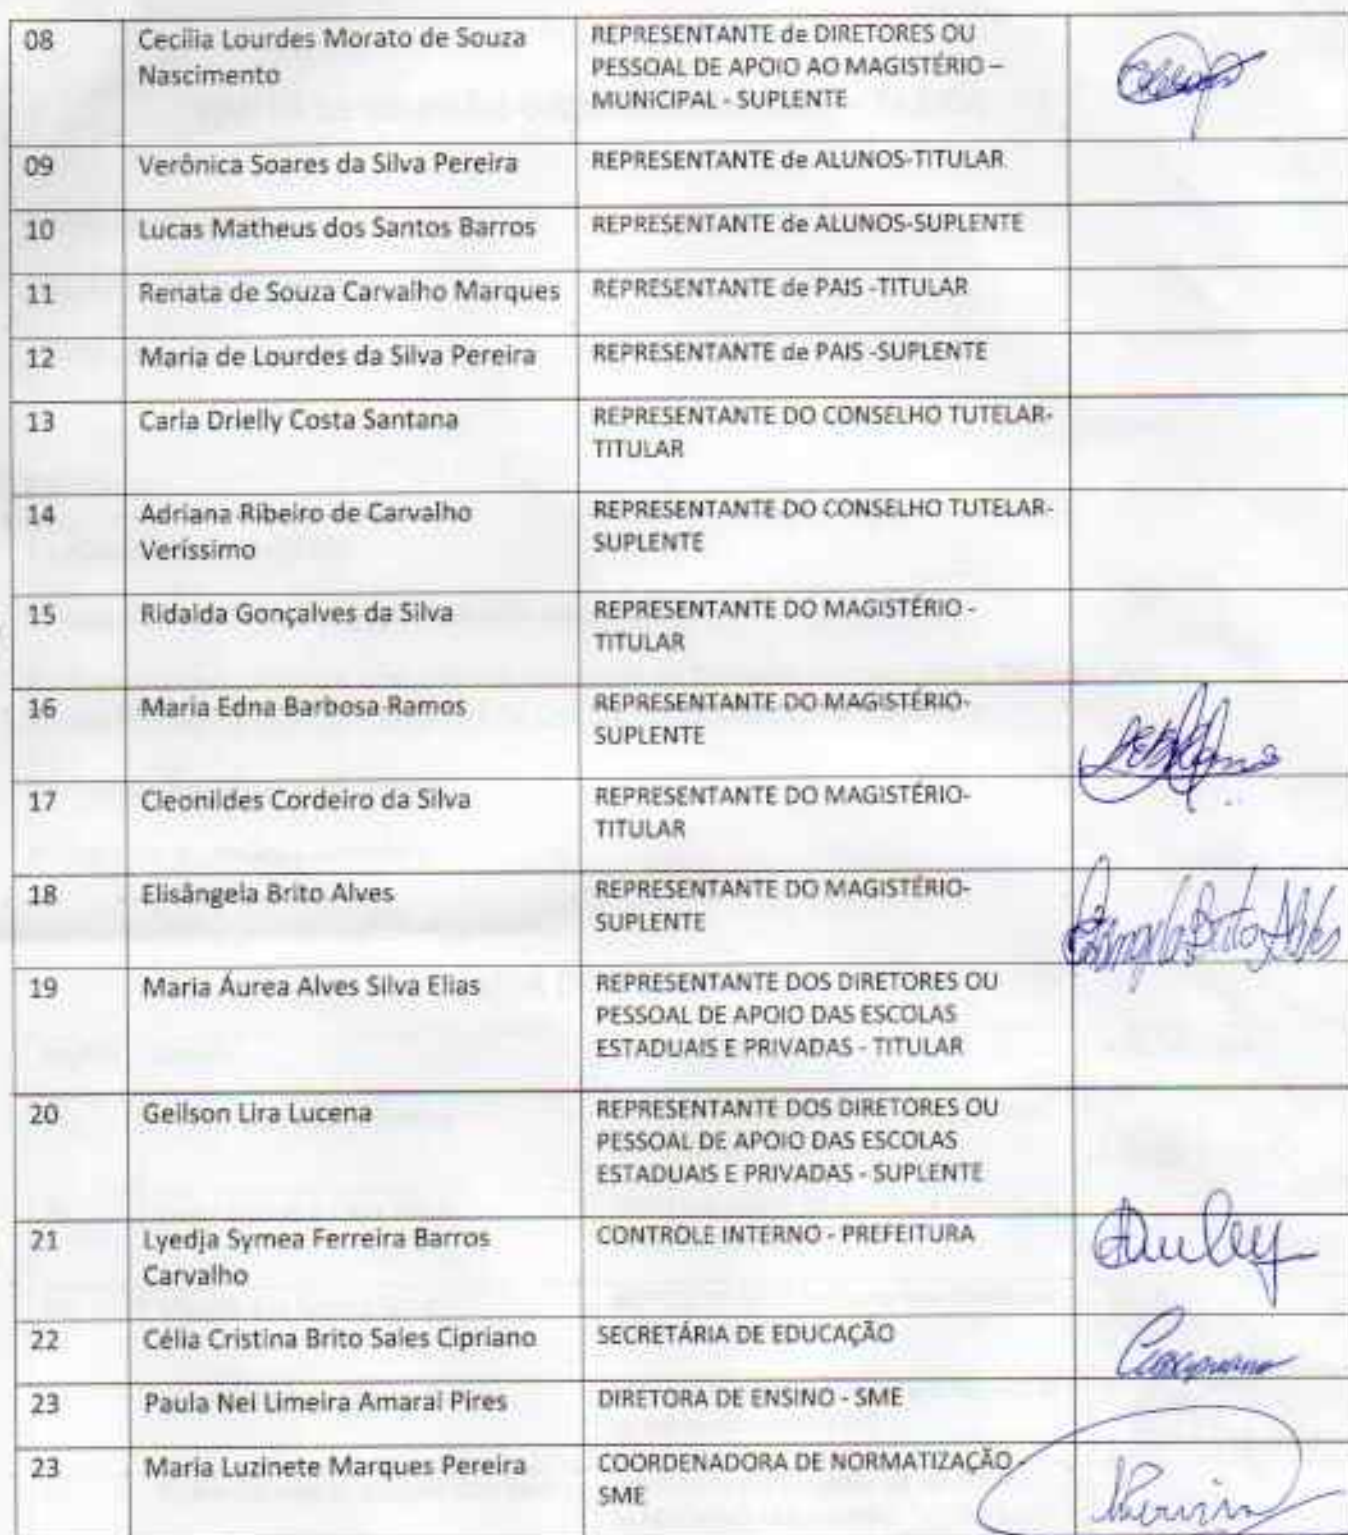 08 Cecilia Lourdes Morato de Souza Nascimento REPRESENTANTE de DIRETORES OU PESSOAL DE APOIO AO MAGISTÉRIO – MUNICIPAL - SUPLENTE
09 Verônica Soares da Silva Pereira REPRESENTANTE de ALUNOS-TITULAR
10 Lucas Matheus dos Santos Barros REPRESENTANTE de ALUNOS-SUPLENTE
11 Renata de Souza Carvalho Marques REPRESENTANTE de PAIS -TITULAR
12 Maria de Lourdes da Silva Pereira REPRESENTANTE de PAIS -SUPLENTE
13 Carla Drielly Costa Santana REPRESENTANTE DO CONSELHO TUTELAR- TITULAR
14 Adriana Ribeiro de Carvalho Veríssimo REPRESENTANTE DO CONSELHO TUTELAR- SUPLENTE
15 Ridalda Gonçalves da Silva REPRESENTANTE DO MAGISTÉRIO - TITULAR
16 Maria Edna Barbosa Ramos REPRESENTANTE DO MAGISTÉRIO- SUPLENTE
17 Cleonildes Cordeiro da Silva REPRESENTANTE DO MAGISTÉRIO- TITULAR
18 Elisângela Brito Alves REPRESENTANTE DO MAGISTÉRIO- SUPLENTE Brito Alves
19 Maria Áurea Alves Silva Elias REPRESENTANTE DOS DIRETORES OU PESSOAL DE APOIO DAS ESCOLAS ESTADUAIS E PRIVADAS - TITULAR
20 Geilson Lira Lucena REPRESENTANTE DOS DIRETORES OU PESSOAL DE APOIO DAS ESCOLAS ESTADUAIS E PRIVADAS - SUPLENTE
21 Lyedja Symea Ferreira Barros Carvalho CONTROLE INTERNO - PREFEITURA
22 Célia Cristina Brito Sales Cipriano SECRETÁRIA DE EDUCAÇÃO
23 Paula Nei Limeira Amaral Pires DIRETORA DE ENSINO - SME
23 Maria Luzinete Marques Pereira COORDENADORA DE NORMATIZAÇÃO - SME